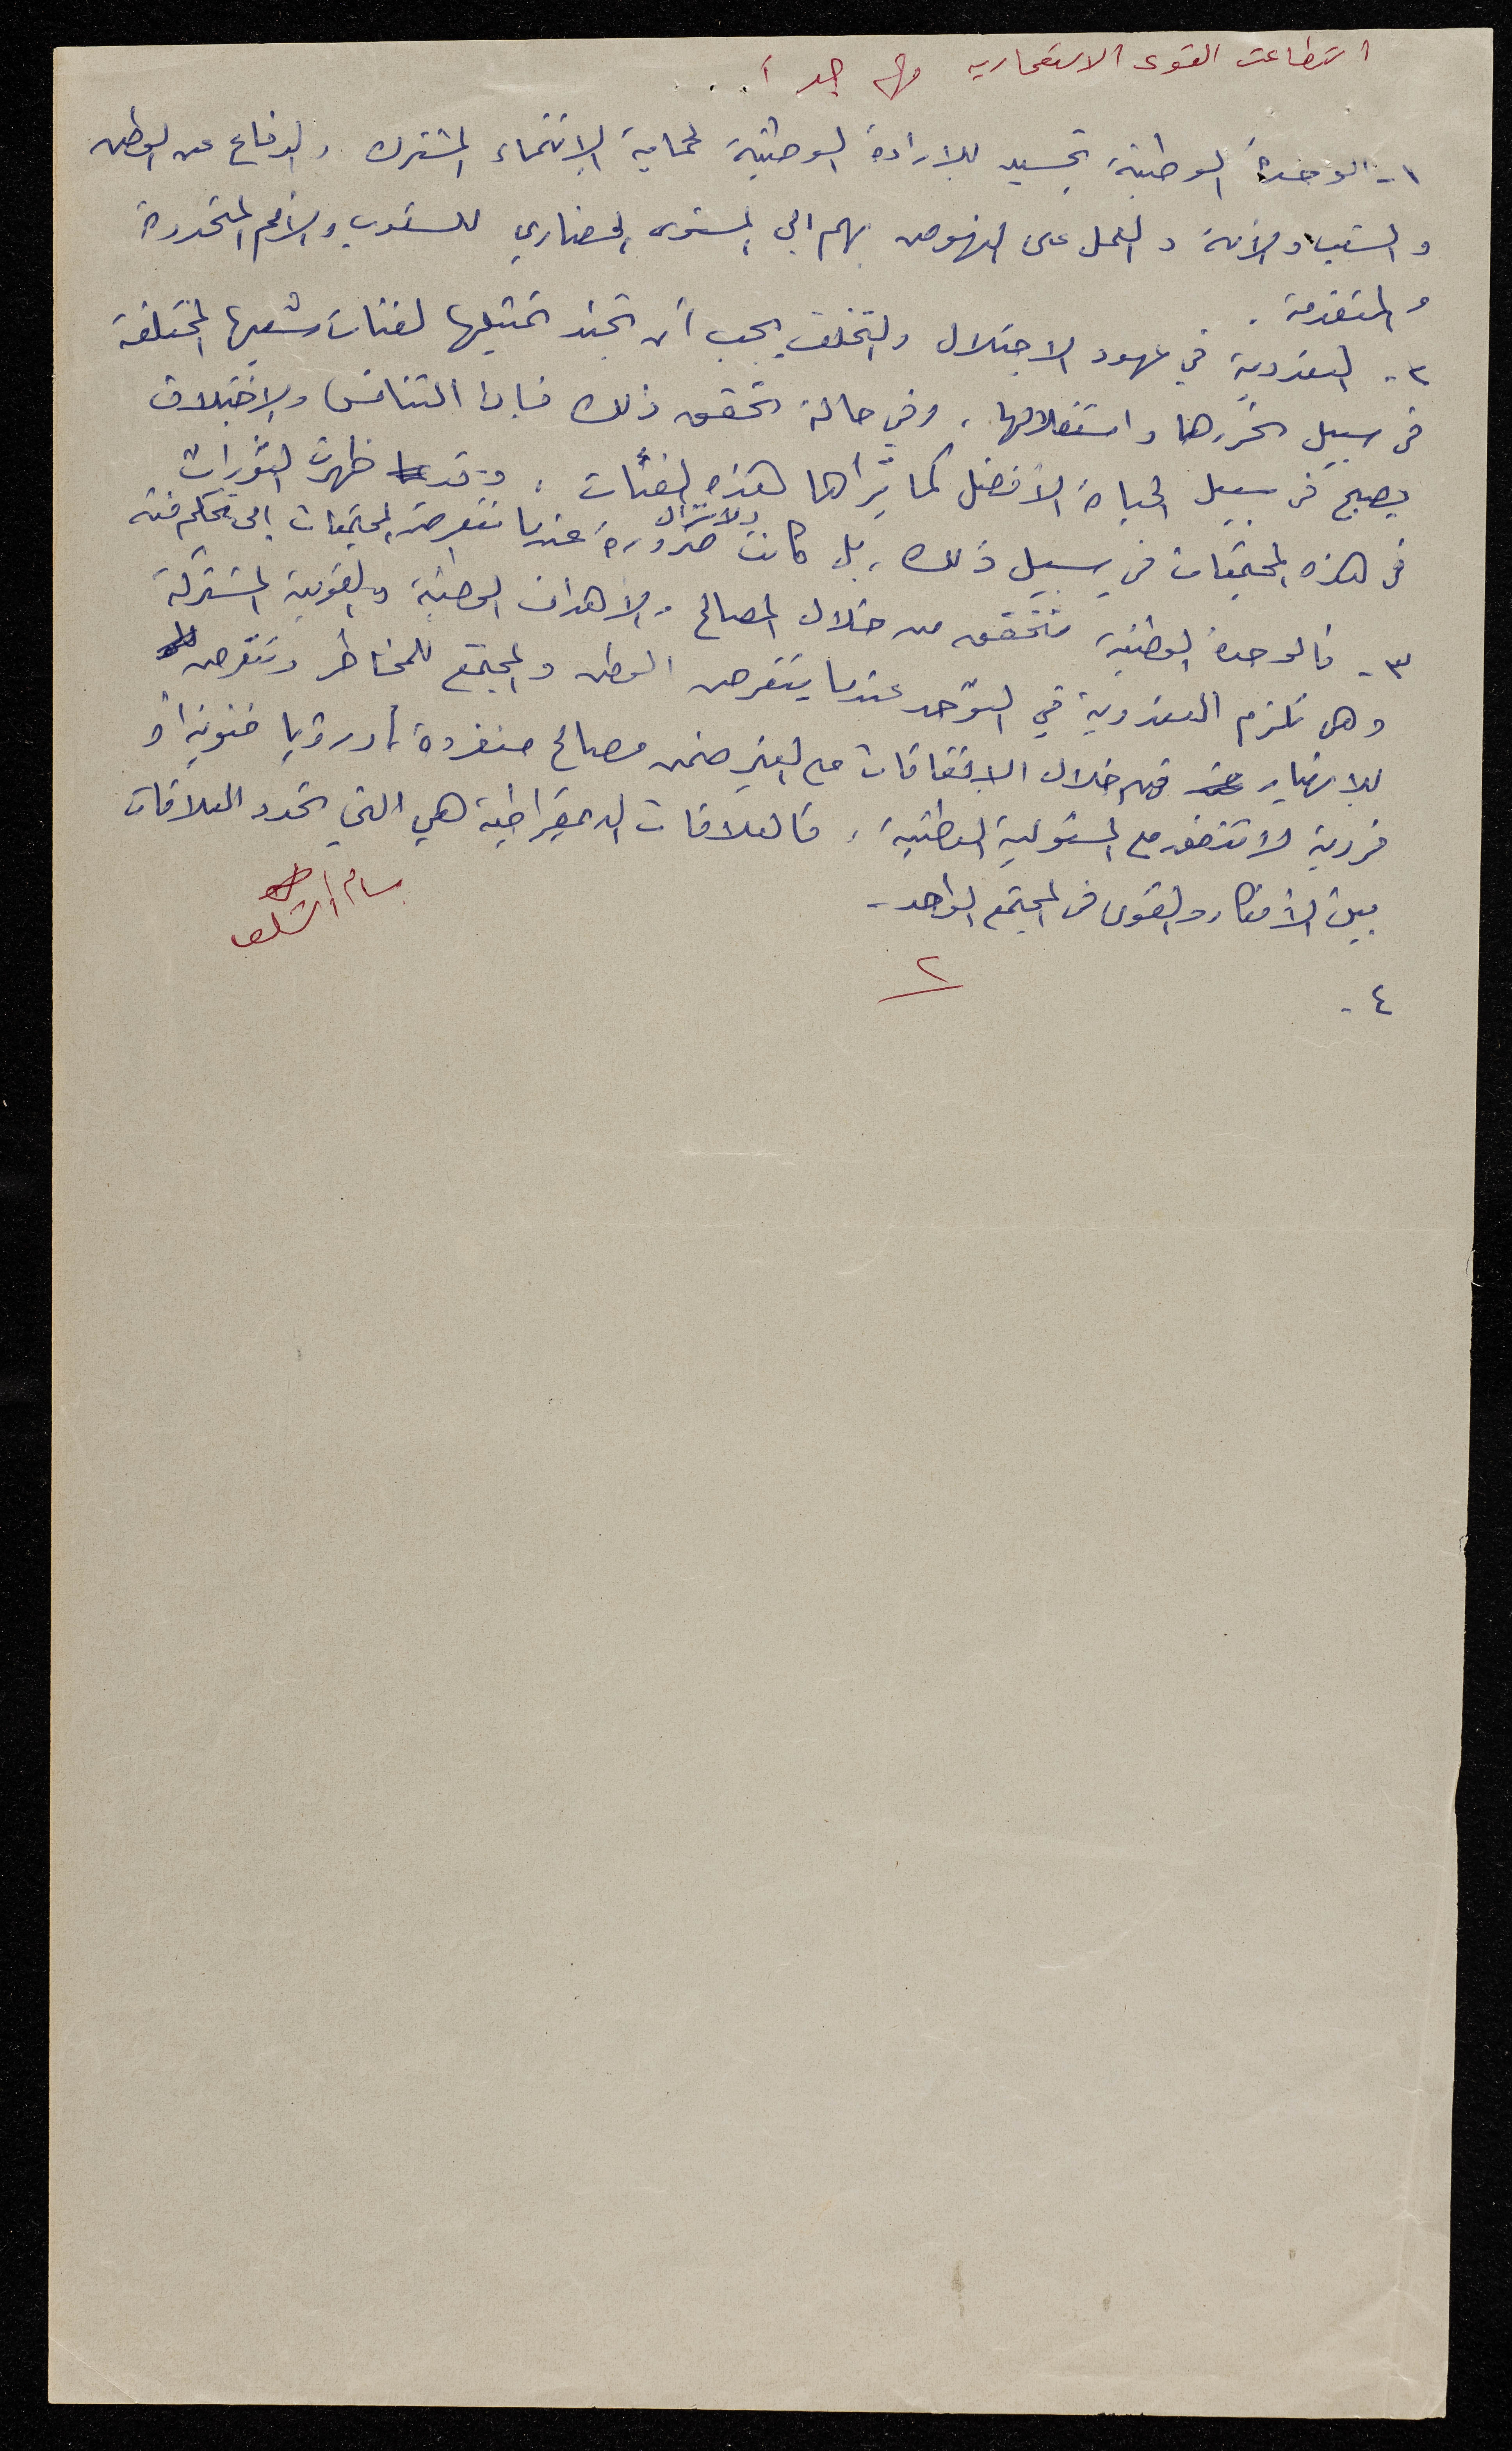 استطاعت القوى الاستعماريه مهم جداً...
١- الوحدة الوطنية تجسيد للإرادة الوطنية لحماية الإنتماء المشترك والدفاع عن الوطن
والشعب والأمة والعمل على النهوض بهم الى المستوى الحضاري للشعوب والأمم المتحررة
والمتقدمة.
٢- التعددية في عهود الاحتلال والتخلف يجب أن تجند تمثيلها لفئات شعبها المختلفة
في سبيل تحررها واستقلالها، وفي حالة تحقق ذلك فإن التنافس والإختلاف
يصبح في سبيل الحياة الأفضل كما تراها هذه الفئات، وقد ظهرت الثورات
في هذه المجتمعات في سبيل ذلك، بل كانت ولا تزال ضرورة عندما تتعرض المجتمعات الى تحكم فئة
٣- فالوحدة الوطنية تتحقق من خلال المصالح والأهداف الوطنية والقومية المشتركة
وهي تلزم التعددية في التوحد عندما يتعرض الوطن والمجتمع للمخاطر وتتعرض
للانهيار من خلال الاتفاقات مع الغير ضمن مصالح منفردة أو رؤيا فئوية أو
فردية لا تتفق مع المسئولية الوطنية، فالعلاقات الديمقراطية هي التي تحدد العلاقات
بين الأفكار والقوى في المجتمع الواحد-
بسام الشكعه
٢
٤-